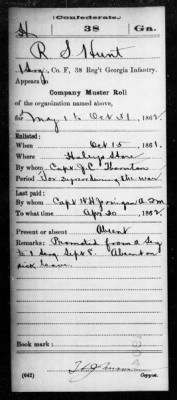 (Confederate.)
H 38 Ga.
R S Hunt
1 Serg, Co. F, 38 Reg't Georgia Infantry.
Appears on
Company Muster Roll
of the organization named above,
for May 1 to Oct 31, 1862.
Enlisted:
When Oct 15, 1861.
Where Hulsey Store
By whom Capt J. C. Thornton
Period For during the war
Last paid:
By whom Capt
To what time Apr 30, 1862.
Present or absent Absent
Remarks: Promoted from 2 Seg
to 1 Seg Sept 8. Absent on
sick leave.
Book mark:
(642) Copyist.